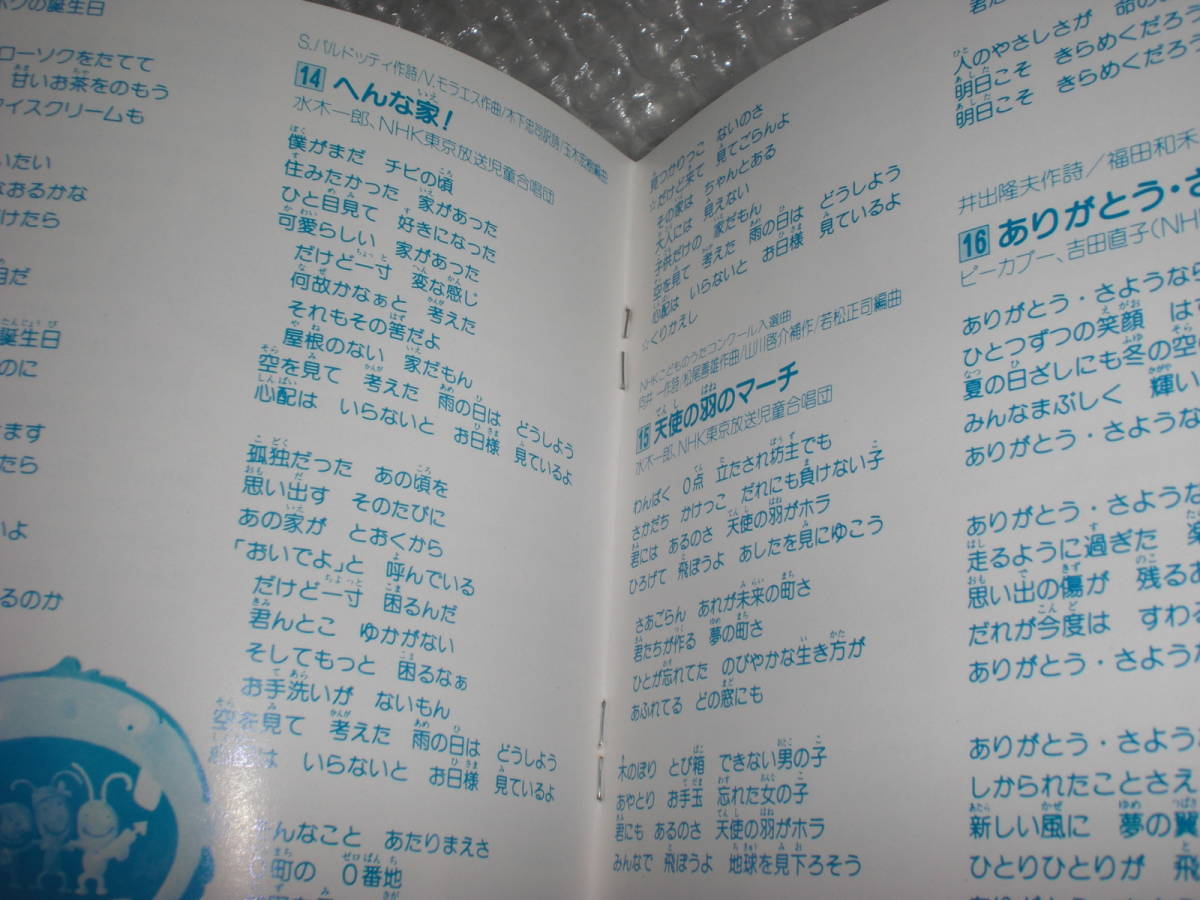 ボクの誕生日
ローソクをたてて
甘いお茶をのもう
アイスクリームも
いたい
なおるかな
けたら
目だ
誕生日
のに
ます
たら
いよ
るのか
S.バルドッティ作詩/V.モラエス作曲/木下忠司訳詩/玉木宏樹編曲
14 へんな家!
水木一郎、NHK東京放送児童合唱団
僕がまだ チビの頃
住みたかった 家があった
ひと目見て 好きになった
可愛らしい 家があった
だけど一寸 変な感じ
何故かなぁと 考えた
それもその筈だよ
屋根のない 家だもん
空を見て 考えた 雨の日は どうしよう
心配は いらないと お日様 見ているよ
孤独だった あの頃を
思い出す そのたびに
あの家が とおくから
「おいでよ」と 呼んでいる
だけど一寸 困るんだ
君んとこ ゆかがない
そしてもっと 困るなぁ
お手洗いが ないもん
空を見て 考えた 雨の日は どうしよう
は いらないと お日様 見ているよ
んなこと あたりまえさ
町の 0番地
見つかりっこ ないのさ
☆だけど来て 見てごらんよ
その家は ちゃんとある
大人には 見えない
子供だけの 家だもん
空を見て 考えた 雨の日は どうしよう
心配は いらないと お日様 見ているよ
☆くりかえし
NHKこどものうたコンクール入選曲
向井一作詩/松尾善雄作曲/山川啓介補作/若松正司編曲
15 天使の羽のマーチ
水木一郎、NHK東京放送児童合唱団
わんぱく 0点 立たされ坊主でも
さかだち かけっこ だれにも負けない子
君には あるのさ 天使の羽がホラ
ひろげて 飛ぼうよ あしたを見にゆこう
さあごらん あれが未来の町さ
君たちが作る 夢の町さ
ひとが忘れてた のびやかな生き方が
あふれてる どの窓にも
木のぼり とび箱 できない男の子
あやとり お手玉 忘れた女の子
君にも あるのさ 天使の羽がホラ
みんなで 飛ぼうよ 地球を見下ろそう
人のやさしさが
明日こそ きらめくだろう
明日こそ きらめくだろ
井出隆夫作詩/福田和禾
16 ありがとう・さ
ピーカブー、吉田直子(NH
ありがとう・さようなら
ひとつずつの笑顔 は
夏の日ざしにも冬の空
みんなまぶしく 輝い
ありがとう・さような
ありがとう・さような
走るように過ぎた 楽
思い出の傷が 残るあ
だれが今度は すわる
ありがとう・さような
ありがとう・さような
しかられたことさえ
新しい風に 夢の翼
ひとりひとりが 飛